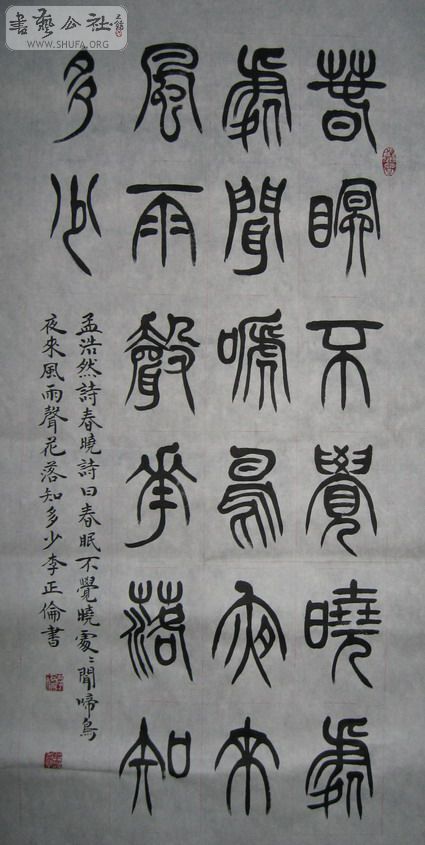 書藝公社
WWW.SHUFA.ORG
春眠不覺曉處
處聞嗁鳥夜來
風雨聲華落知
多少
孟浩然詩春曉詩曰春眠不覺曉處〻聞啼鳥
夜來風雨聲花落知多少李正倫書